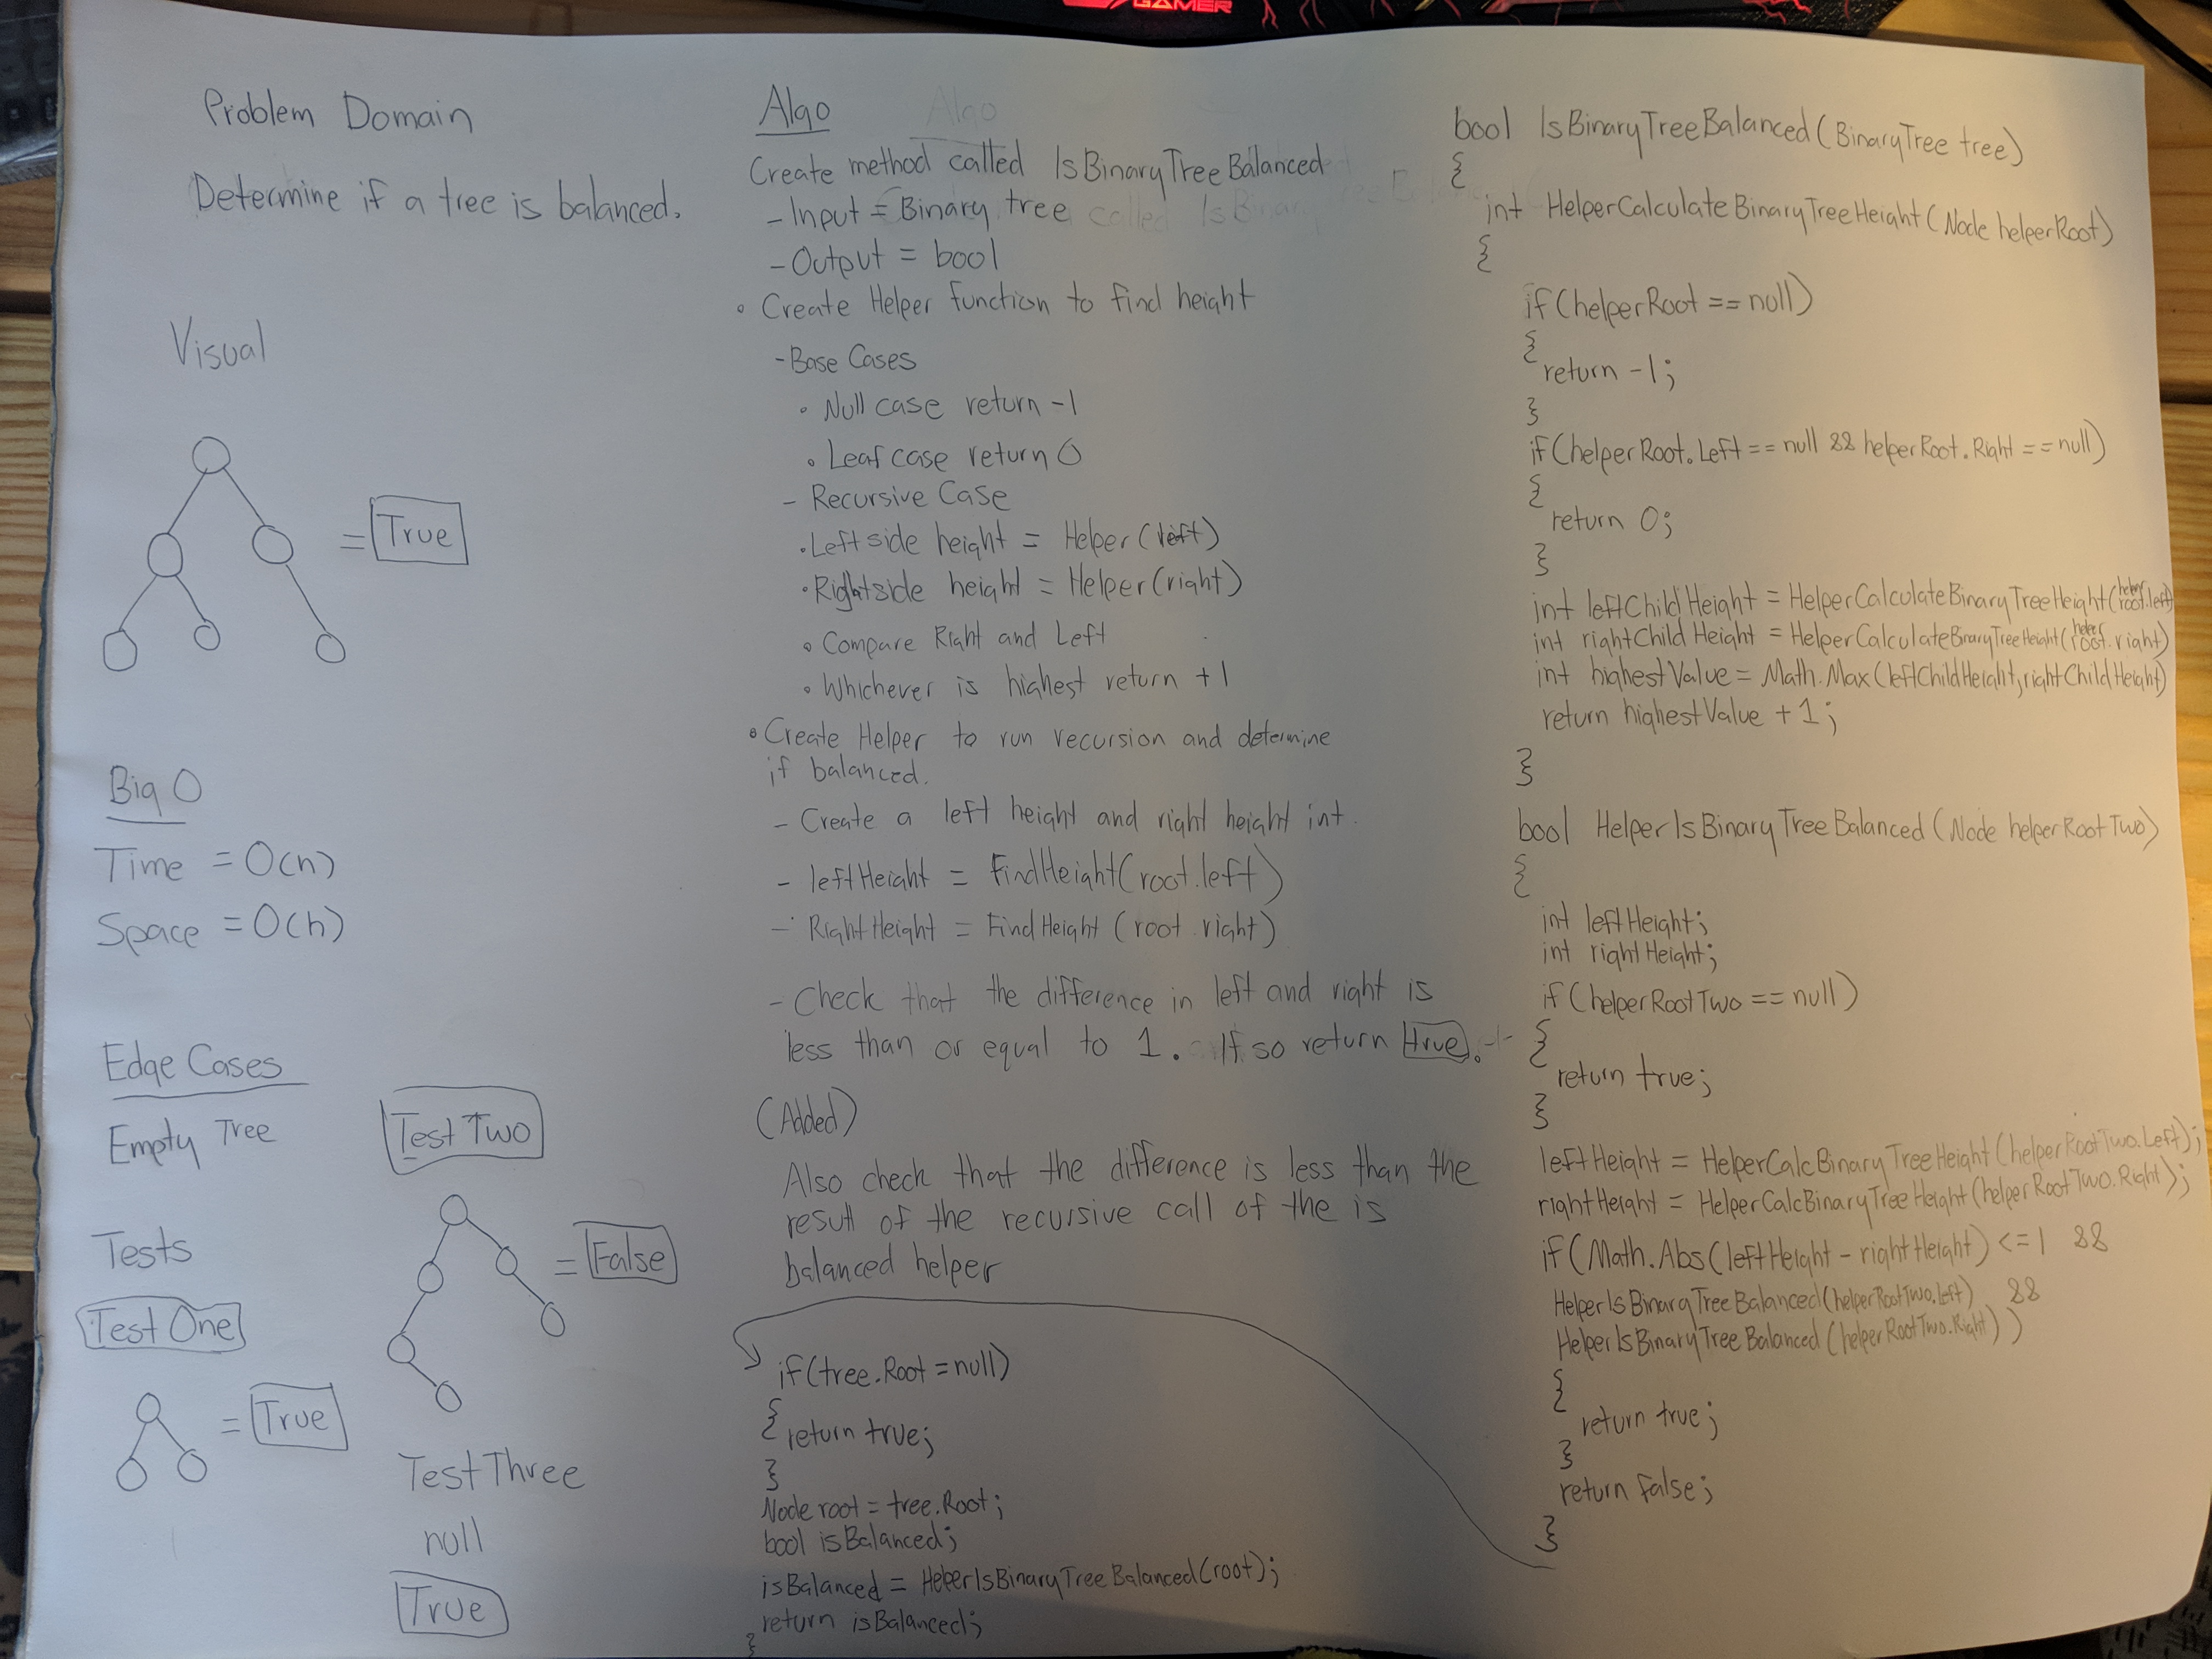 GAMER
Problem Domain
Determine if a tree is balanced.
Visual
= True
Big O
Time = O(n)
Space = O(h)
Edge Cases
Empty Tree
Tests
Test One
= True
Test Two
= False
Test Three
null
True
Algo
Algo
Create method called IsBinaryTreeBalanced
- Input = Binary tree
called IsBinary
- Output = bool
• Create Helper function to find height
- Base Cases
• Null case return -1
• Leaf case return 0
- Recursive Case
• Left side height = Helper(left)
• Rightside height = Helper(right)
• Compare Right and Left
• Whichever is highest return +1
• Create Helper to run recursion and determine
if balanced.
- Create a left height and right height int.
- leftHeight = FindHeight(root.left)
- RightHeight = FindHeight (root.right)
- Check that the difference in left and right is
less than or equal to 1. If so return true.
(Added)
Also check that the difference is less than the
result of the recursive call of the is
balanced helper
if(tree.Root = null)
{
return true;
}
Node root = tree.Root;
bool isBalanced;
isBalanced = HelperIsBinaryTreeBalanced(root);
return isBalanced;
}
bool IsBinaryTreeBalanced(BinaryTree tree)
{
int HelperCalculateBinaryTreeHeight(Node helperRoot)
{
if(helperRoot == null)
{
return -1;
}
if(helperRoot.Left == null && helperRoot.Right == null)
{
return 0;
}
int leftChildHeight = HelperCalculateBinaryTreeHeight(helper root.left)
int rightChildHeight = HelperCalculateBinaryTreeHeight(helper root.right)
int highestValue = Math.Max(leftChildHeight, rightChildHeight)
return highestValue + 1;
}
bool HelperIsBinaryTreeBalanced(Node helperRootTwo)
{
int leftHeight;
int rightHeight;
if(helperRootTwo == null)
{
return true;
}
leftHeight = HelperCalcBinaryTreeHeight(helperRootTwo.Left);
rightHeight = HelperCalcBinaryTreeHeight(helperRootTwo.Right);
if(Math.Abs(leftHeight - rightHeight) <= 1 &&
HelperIsBinaryTreeBalanced(helperRootTwo.left) &&
HelperIsBinaryTreeBalanced(helperRootTwo.Right))
{
return true;
}
return false;
}